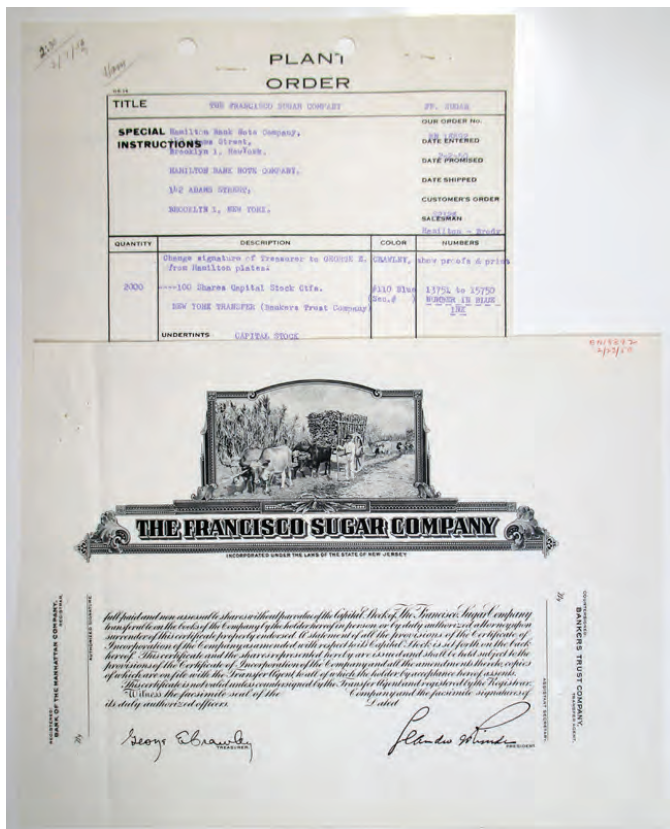 PLANT
ORDER
TITLE THE FRANCISCO SUGAR COMPANY ST. SUGAR
SPECIAL INSTRUCTIONS
Hamilton Bank Note Company,
Street,
Brooklyn 1, NewYork.
HAMILTON BANK NOTE COMPANY,
142 ADAMS STREET,
BROOKLYN 1, NEW YORK.
OUR ORDER No.
DATE ENTERED
DATE PROMISED
DATE SHIPPED
CUSTOMER'S ORDER
SALESMAN
Hamilton - Brody
QUANTITY DESCRIPTION COLOR NUMBERS
Change signature of Treasurer to GEORGE E. CRAWLEY, show proofs & print
from Hamilton plates.
2000 ----100 Shares Capital Stock Ctfs. #110 Blue 13751 to 15750
(Sec.# ) NUMBER IN BLUE
NEW YORK TRANSFER (Bankers Trust Company) INK
UNDERTINTS CAPITAL STOCK
THE FRANCISCO SUGAR COMPANY
INCORPORATED UNDER THE LAWS OF THE STATE OF NEW JERSEY
full paid and non assessable shares without par value of the Capital Stock of The Francisco Sugar Company
transferable on the books of the Company by the holder hereof in person or by duly authorized attorney upon
surrender of this certificate properly endorsed. A statement of all the provisions of the Certificate of
Incorporation of the Company as amended with respect to its Capital Stock is set forth on the back
hereof. This certificate and the shares represented hereby are issued and shall be held subject to the
provisions of the Certificate of Incorporation of the Company and all the amendments thereto, copies
of which are on file with the Transfer Agent to all of which the holder by acceptance hereof assents.
This certificate is not valid unless countersigned by the Transfer Agent and registered by the Registrar.
Witness the facsimile seal of the Company and the facsimile signatures of
its duly authorized officers. Dated
George E Crawley
TREASURER.
PRESIDENT.
REGISTERED:
BANK OF THE MANHATTAN COMPANY,
REGISTRAR.
By
AUTHORIZED SIGNATURE.
COUNTERSIGNED:
BANKERS TRUST COMPANY,
TRANSFER AGENT,
By
ASSISTANT SECRETARY.